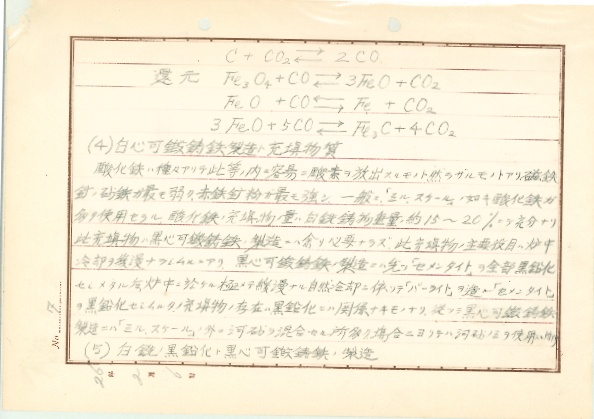 C + CO₂ ⇄ 2CO
還元 Fe₃O₄ + CO ⇄ 3FeO + CO₂
FeO + CO ⇄ Fe + CO₂
3FeO + 5CO ⇄ Fe₃C + 4CO₂
(4) 白心可鍛鋳鉄製造ト充填物質
酸化鉄ハ種々アリテ此等ノ内ニ容易ニ酸素ヲ放出スルモノト然ラザルモノトアリ、磁鉄
鉱ノ砂鉄ガ最モ弱ク、赤鉄鉱粉ガ最モ強シ、一般ニ「ミル、スケール」ノ如キ酸化鉄ガ
多ク使用セラル、酸化鉄ノ充填物ノ量ハ白鉄鋳物重量ノ約15〜20%ニテ充分ナリ
此充填物ハ黒心可鍛鋳鉄ノ製造ニハ余リ必要ナラズ、此充填物ノ主要役目ハ炉中
冷却ヲ緩漫ナラシムルニアリ、黒心可鍛鋳鉄ノ製造ニハ先ヅ「セメンタイト」ヲ全部黒鉛化
セシメタル后炉中ニ於ケル極メテ緩漫ナル自然冷却ニ依ッテ「パーライト」ヲ造ル「セメンタイト」
ヲ黒鉛化セシムルノ充填物ノ存在ハ黒鉛化ニハ関係ナキモノナリ、従ッテ黒心可鍛鋳鉄
製造ニハ「ミル、スケール」ノ外ニ河砂ヲ混合セル所多ク場合ニヨッテハ河砂ノミヲ使用
(5) 白銑ノ黒鉛化ト黒心可鍛鋳鉄ノ製造
No. 7
26 年 2 月 6 日